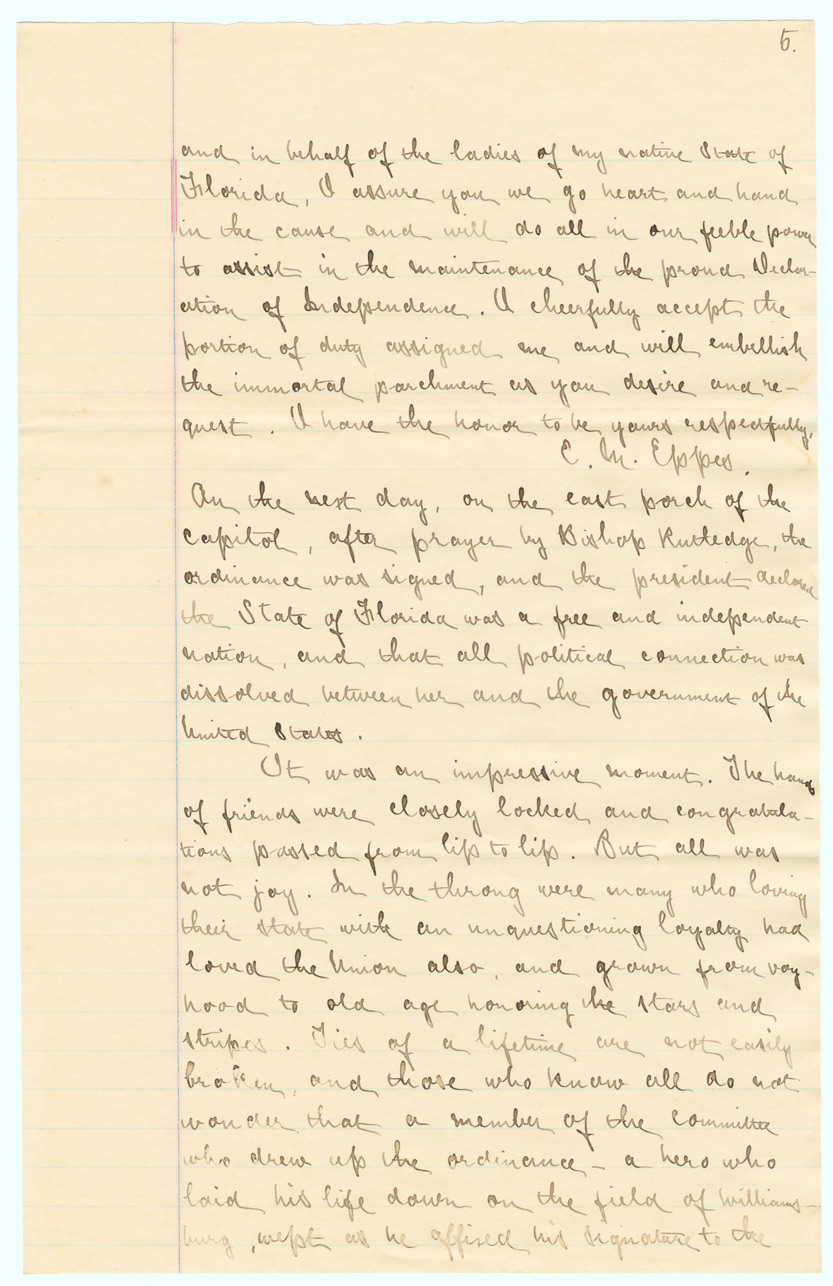 5.
and in behalf of the ladies of my native State of
Florida, I assure you we go heart and hand
in the cause and will do all in our feeble power
to assist in the maintenance of the proud Declar-
ation of Independence. I cheerfully accept the
portion of duty assigned me and will embellish
the immortal parchment as you desire and re-
quest. I have the honor to be yours respectfully,
E. M. Eppes.
On the next day, on the east porch of the
capitol, after prayer by Bishop Rutledge, the
ordinance was signed, and the president declared
the State of Florida was a free and independent
nation, and that all political connection was
dissolved between her and the government of the
United States.
It was an impressive moment. The hands
of friends were closely locked and congratula-
tions passed from lip to lip. But all was
not joy. In the throng were many who loving
their state with an unquestioning loyalty had
loved the Union also, and grown from boy-
hood to old age honoring the stars and
stripes. Ties of a lifetime are not easily
broken, and those who know all do not
wonder that a member of the committee
who drew up the ordinance - a hero who
laid his life down on the field of Williams-
burg, wept as he affixed his signature to the